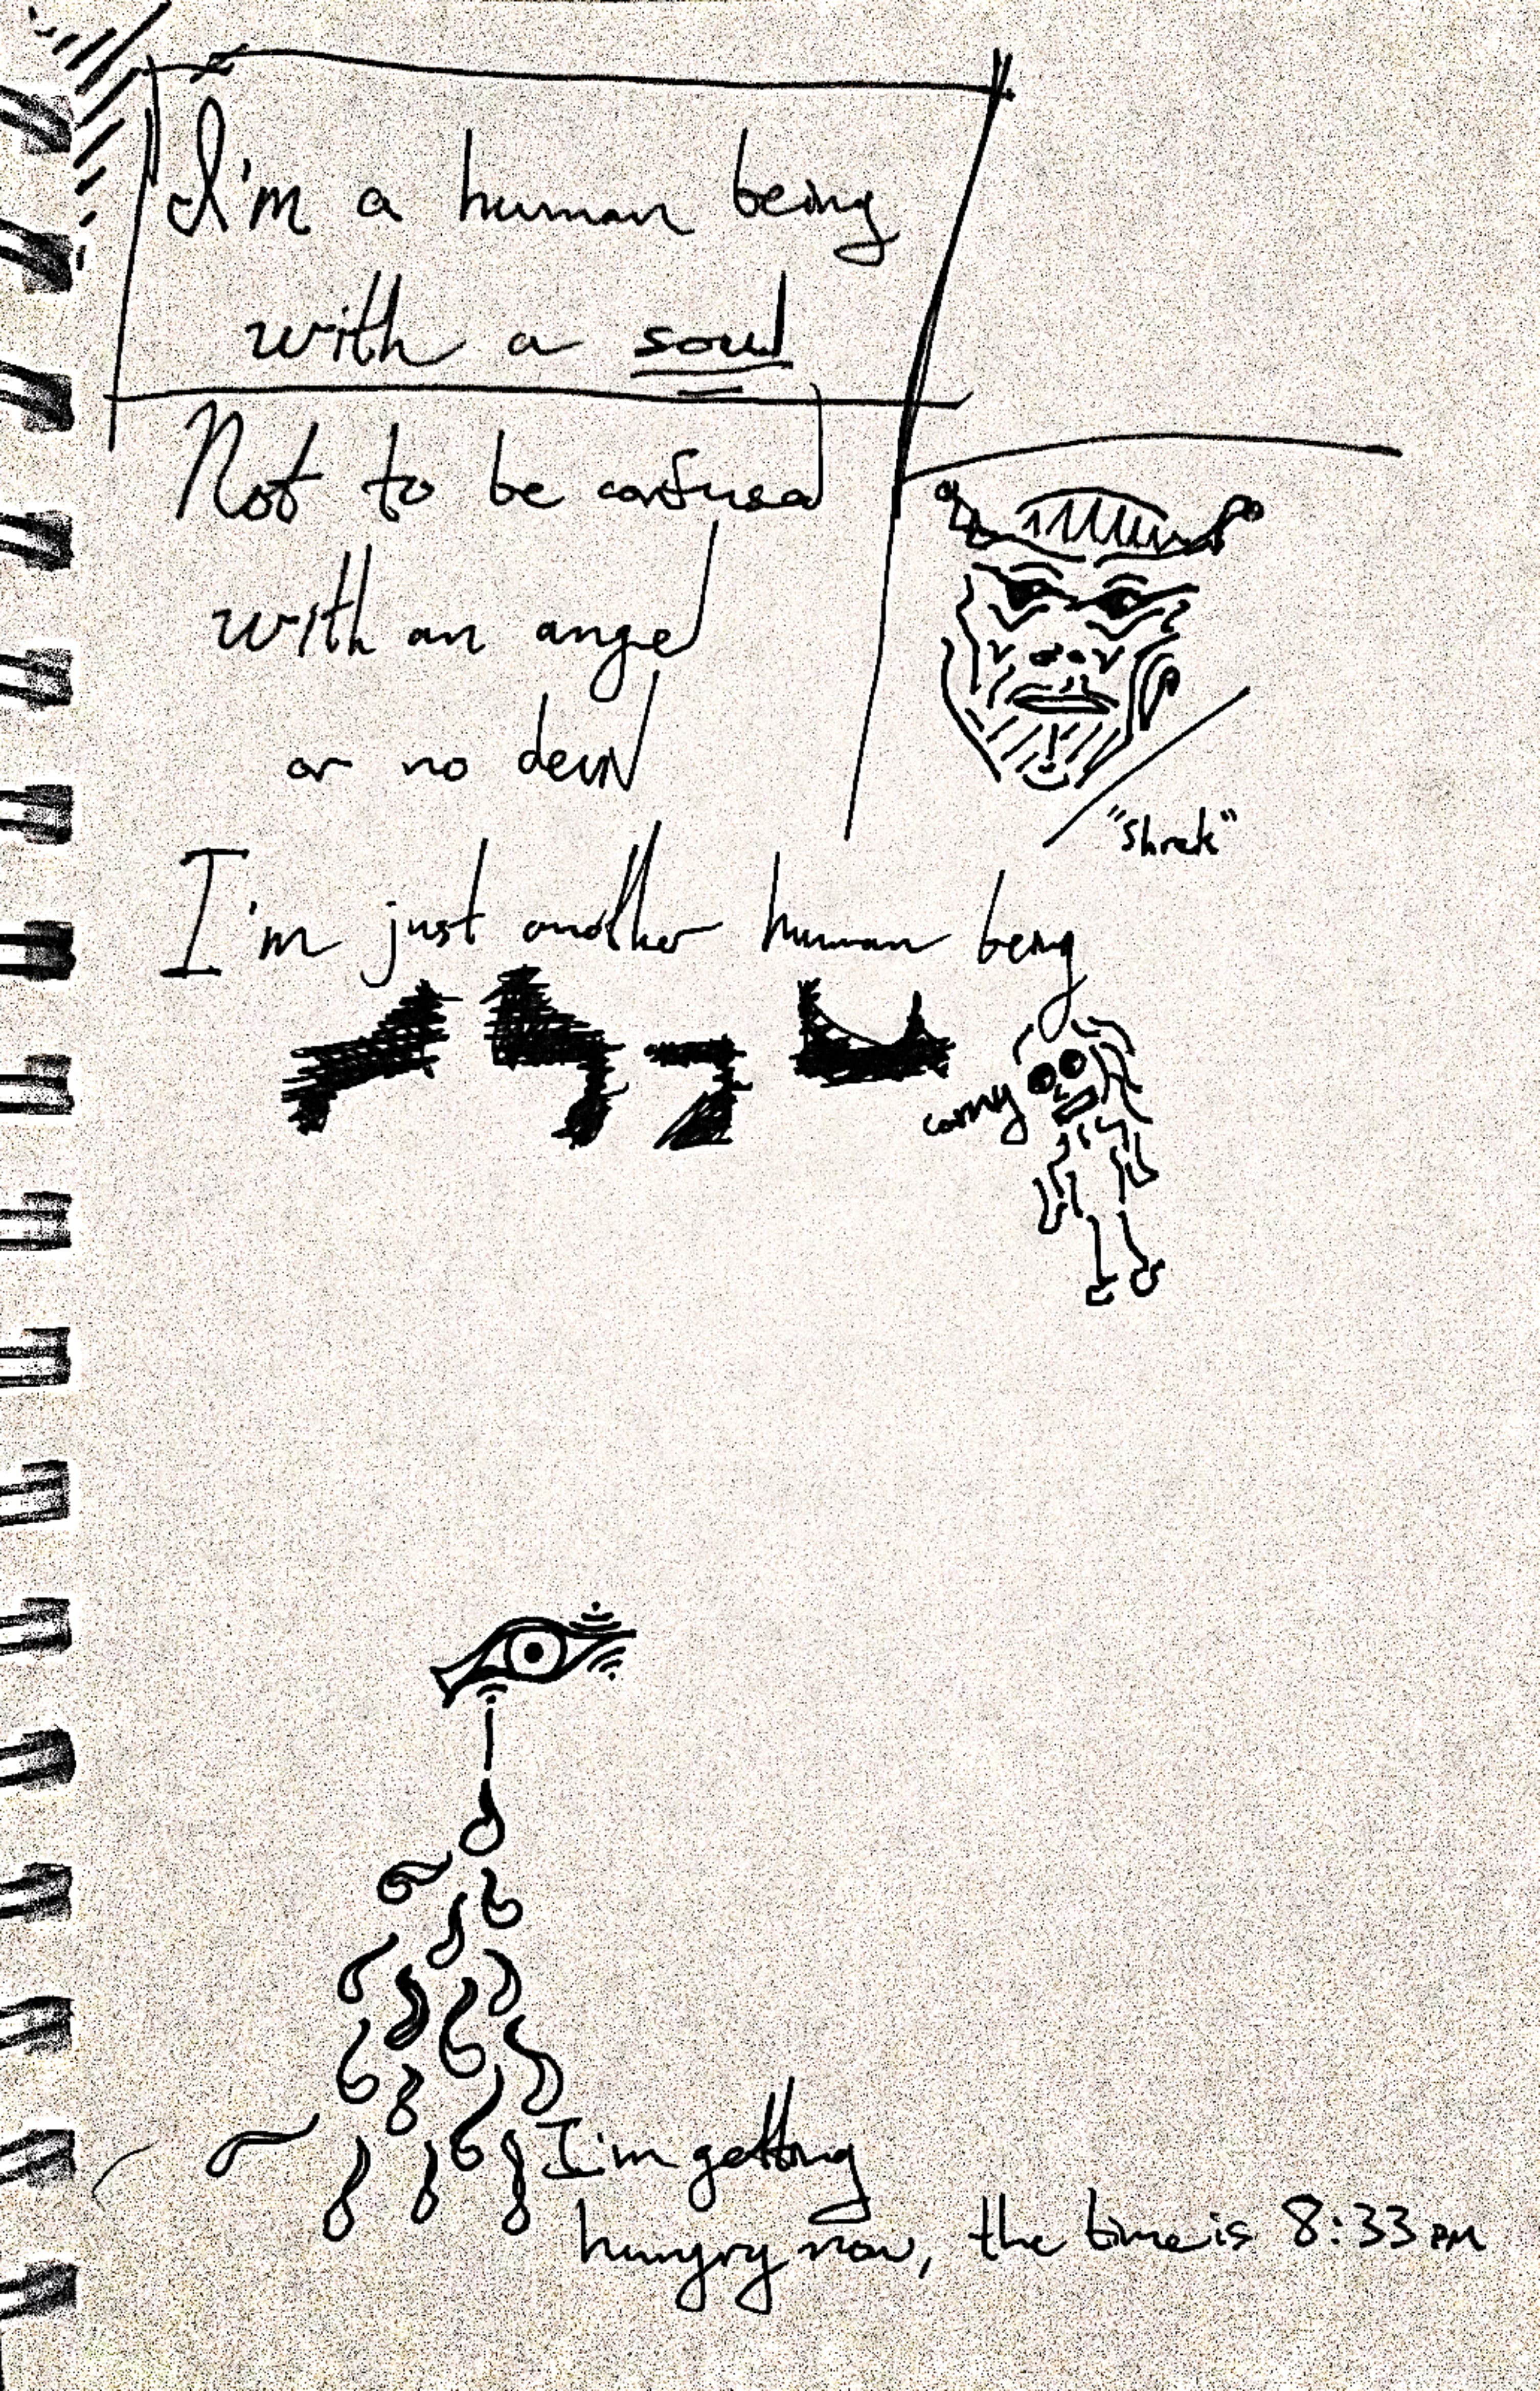 I'm a human being
with a soul
Not to be confused
with an angel
or no devil
"Shrek"
I'm just another human being
corny
I'm getting
hungry now, the time is 8:33 PM